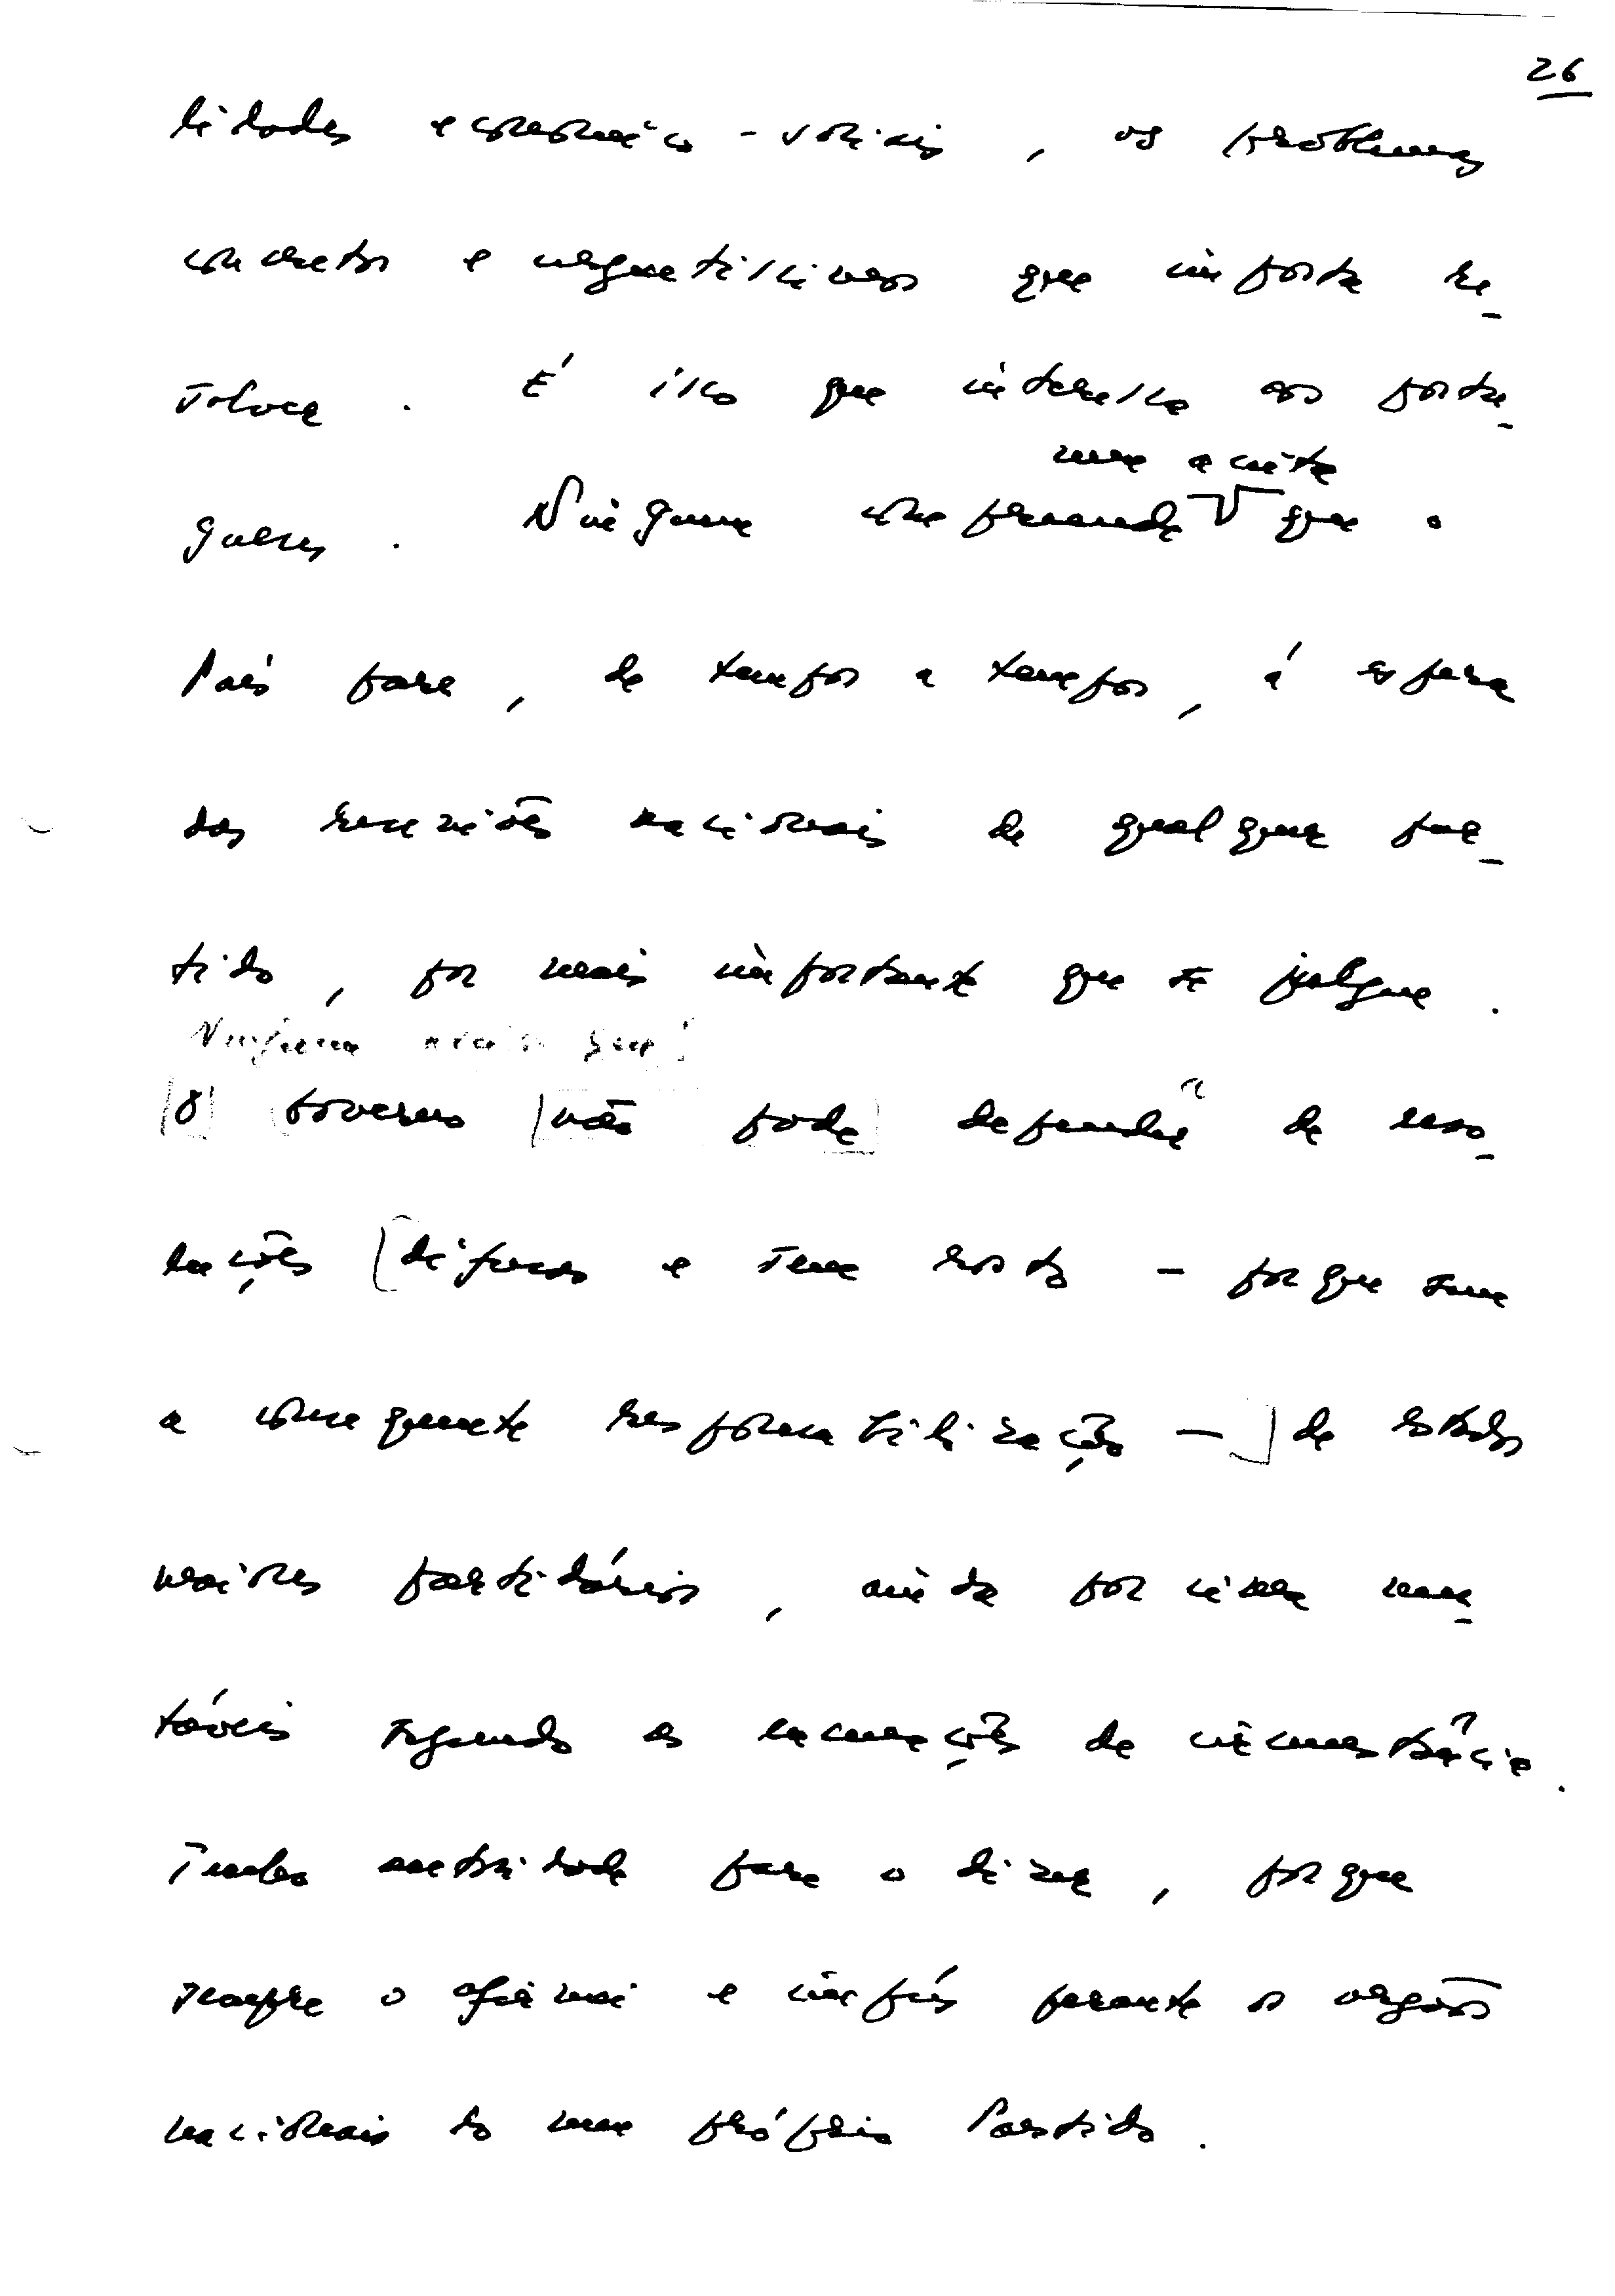 26
lidades económico-sociais, os problemas
concretos e urgentíssimos que importa re-
solver. É isso que interessa aos portu-
nem aceita
gueses. Ninguém compreende que o
País pare, de tempos a tempos, á espera
das reuniões nacionais de qualquer par-
tido, por mais importante que se julgue.
Ninguém aceita que
O Governo não pode depender de reso-
luções difusas e sem rosto - porque sem
a consequente responsabilização - de estados
maiores partidários, ainda por cima mu-
táveis segundo as de circunstância.
Tenho autoridade para o dizer, porque
sempre o afirmei e impús perante os orgãos
nacionais do meu próprio Partido.